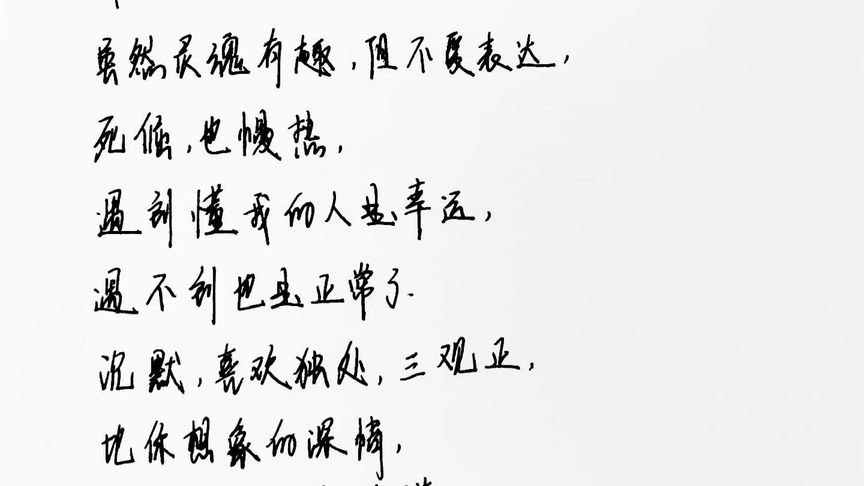 虽然灵魂有趣,但不爱表达,
死倔,也慢热,
遇到懂我的人是幸运,
遇不到也是正常了.
沉默,喜欢独处,三观正,
比你想象的深情,